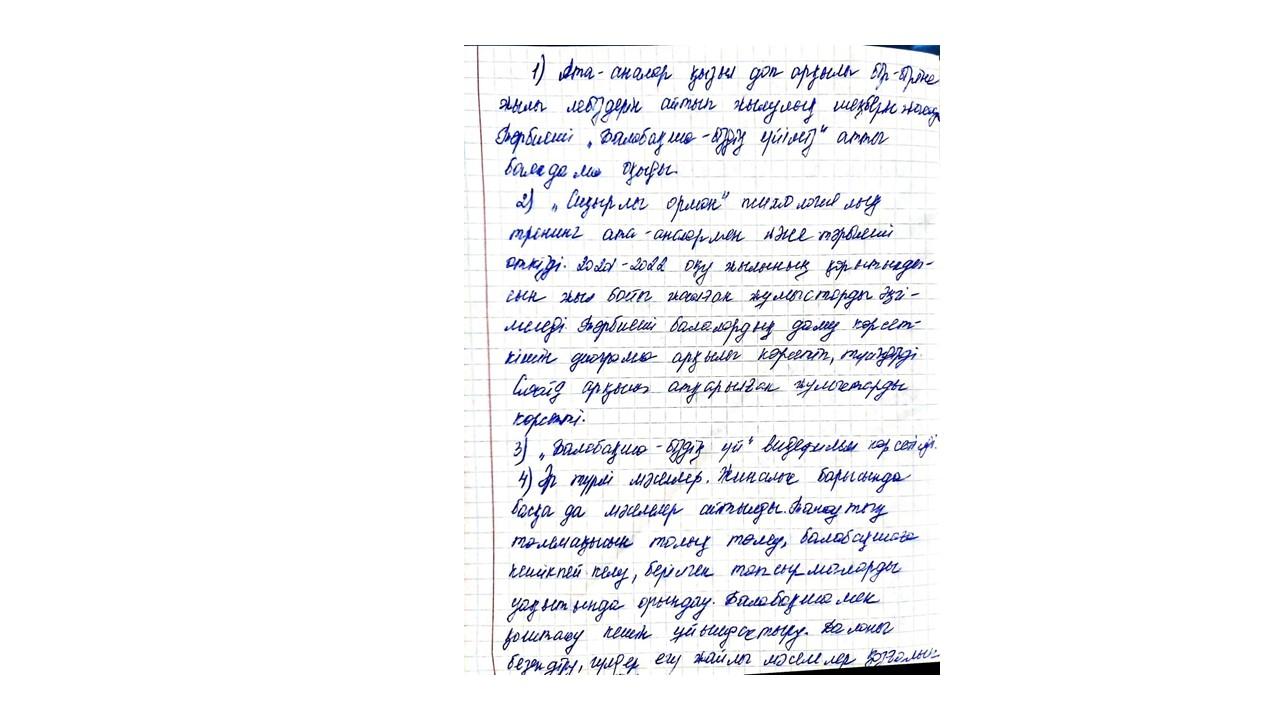 1) Ата-аналар қызыл доп арқылы бір-біріне
жылы лебіздерін айтып жылулық шеңберін жасады
Тәрбиеші „Балабақша-біздің үйіміз" атты
баяндама оқыды.
2) „Сиқырлы орман" психологиялық
тренинг ата-аналармен және тәрбиеші
өткізді. 2021-2022 оқу жылының қорытынды-
сын жыл бойы жасаған жұмыстарды әңгі-
меледі. Тәрбиеші балалардың даму көрсет-
кішін диаграмма арқылы көрсетіп, түсіндірді.
Слайд арқылы атқарылған жұмыстарды
көрсетті.
3) „Балабақша-біздің үй" видефильм көрсетілді.
4) Әр түрлі мәселелер. Жиналыс барысында
басқа да мәселелер айтылды.
төлемақысын толық төлеу, балабақшаға
кешікпей келу, берілген тапсырмаларды
уақытында орындау. Балабақшамен
қоштасу кешін ұйымдастыру. Даланы
безендіру, гүлдер егу жайлы мәселелер қозғалып